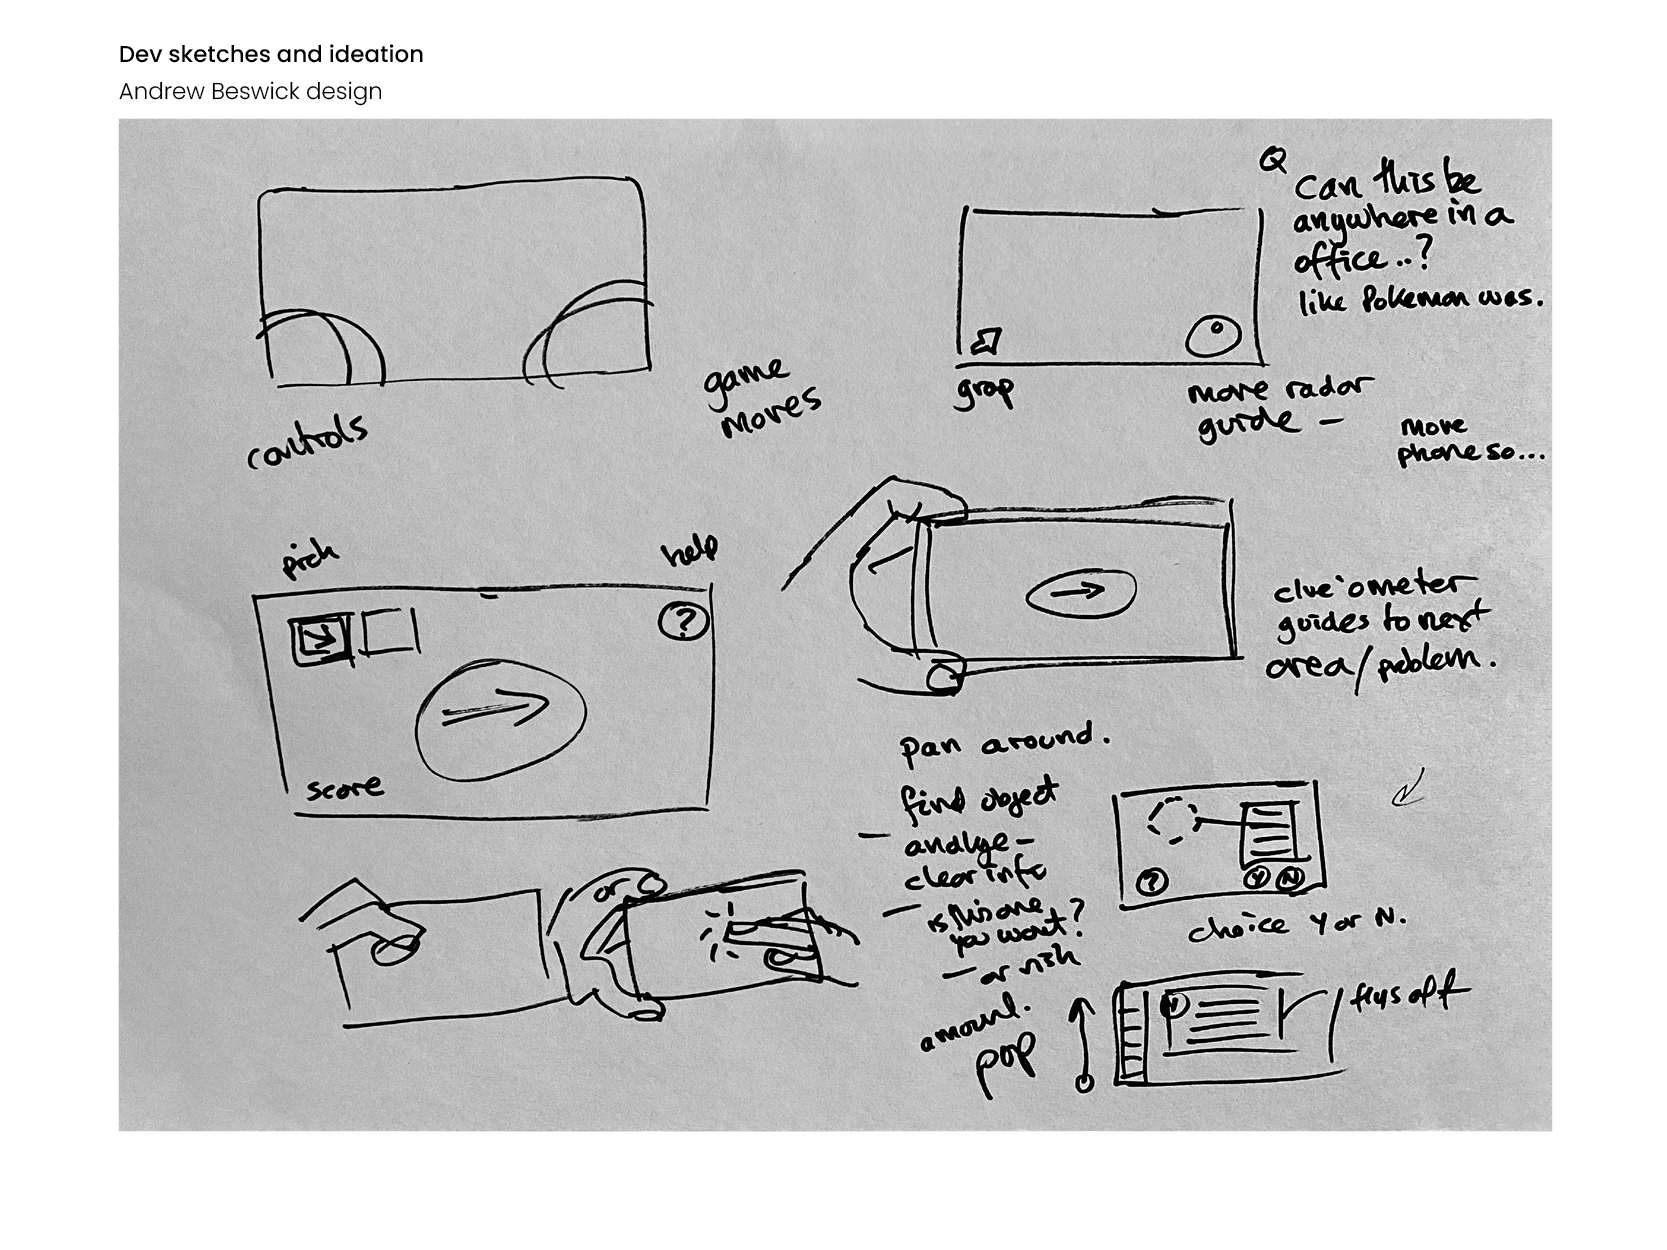 Dev sketches and ideation
Andrew Beswick design
controls
game
moves
Q
Can this be
anywhere in a
office..?
like Pokemon was.
grap
move radar
guide –
move
phone so...
pick
help
?
score
clue'ometer
guides to next
area/problem.
pan around.
find object
– analyse –
clear info
– is this one
you want?
– or risk
amount.
pop
or
?
Y N
choice Y or N.
flys off